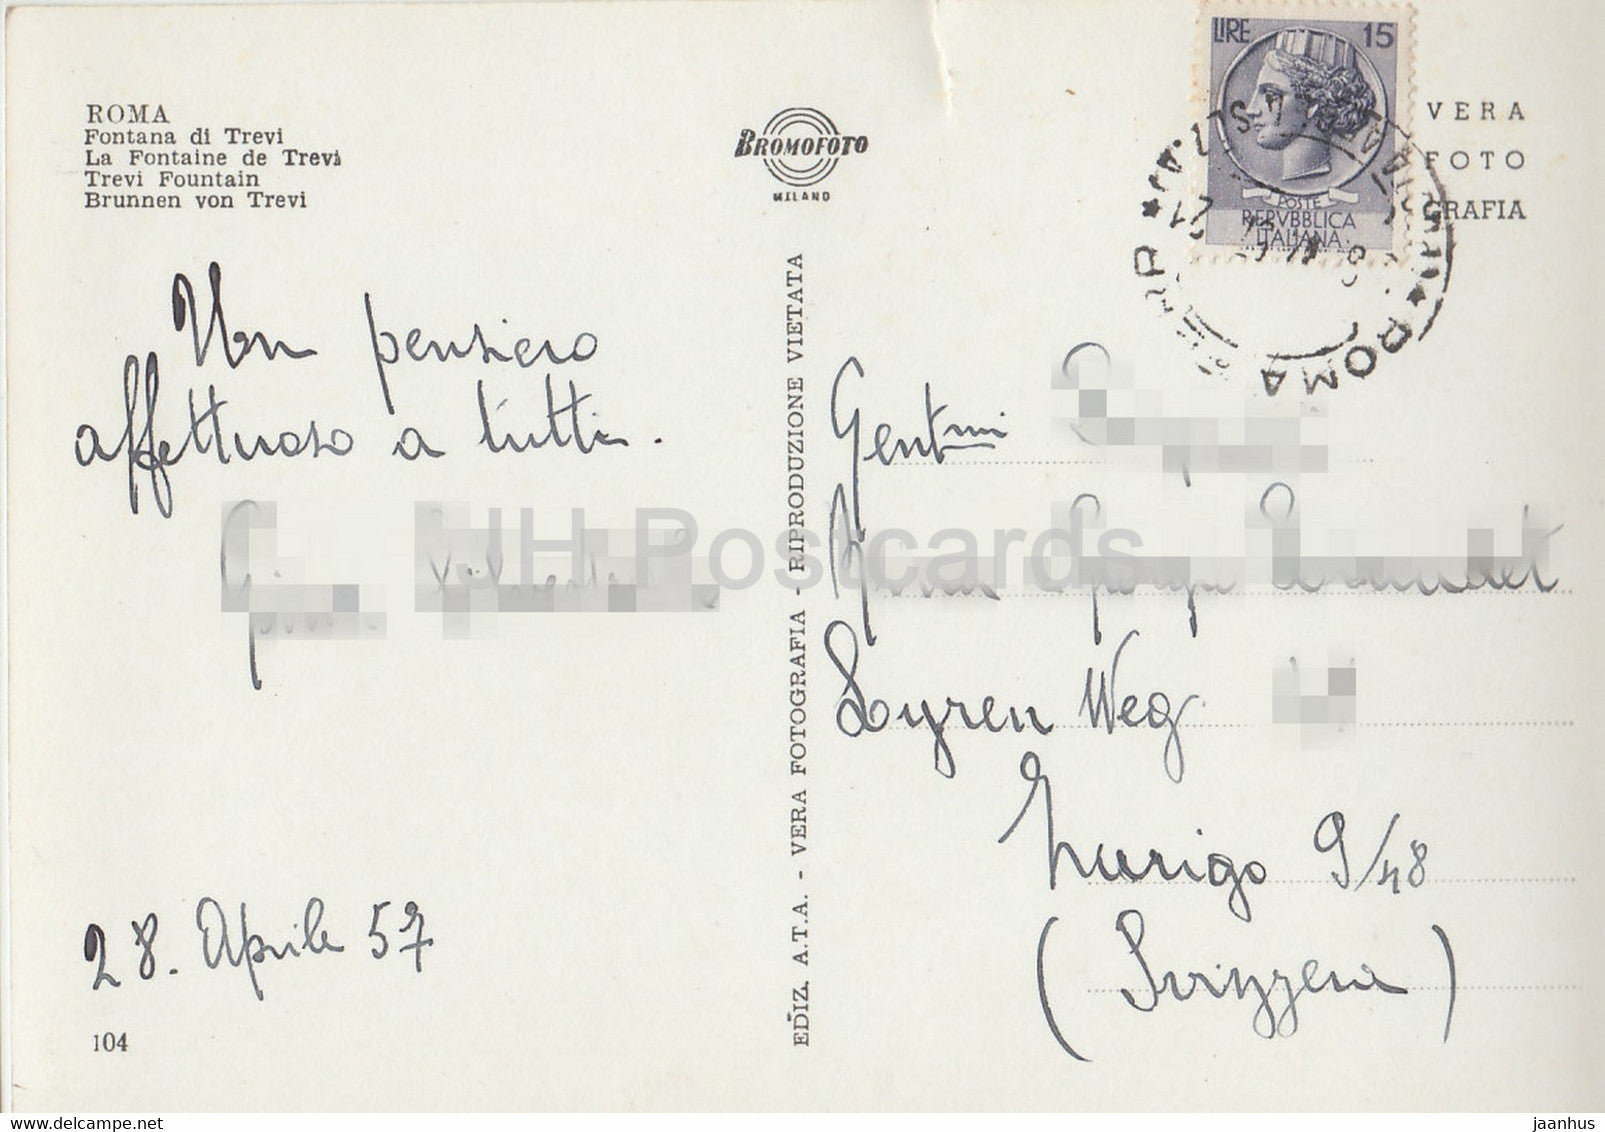 ROMA
Fontana di Trevi
La Fontaine de Trevi
Trevi Fountain
Brunnen von Trevi
BROMOFOTO
MILANO
LIRE 15
POSTE
REPVBBLICA
ITALIANA
ROMA
VERA
FOTO
GRAFIA
Un pensiero
affettuoso a tutti.
28. Aprile 57
104
EDIZ. A.T.A. - VERA FOTOGRAFIA - RIPRODUZIONE VIETATA
Gent.mi
Weg
Zurigo 9/48
(Svizzera)
JH Postcards
jaanhus